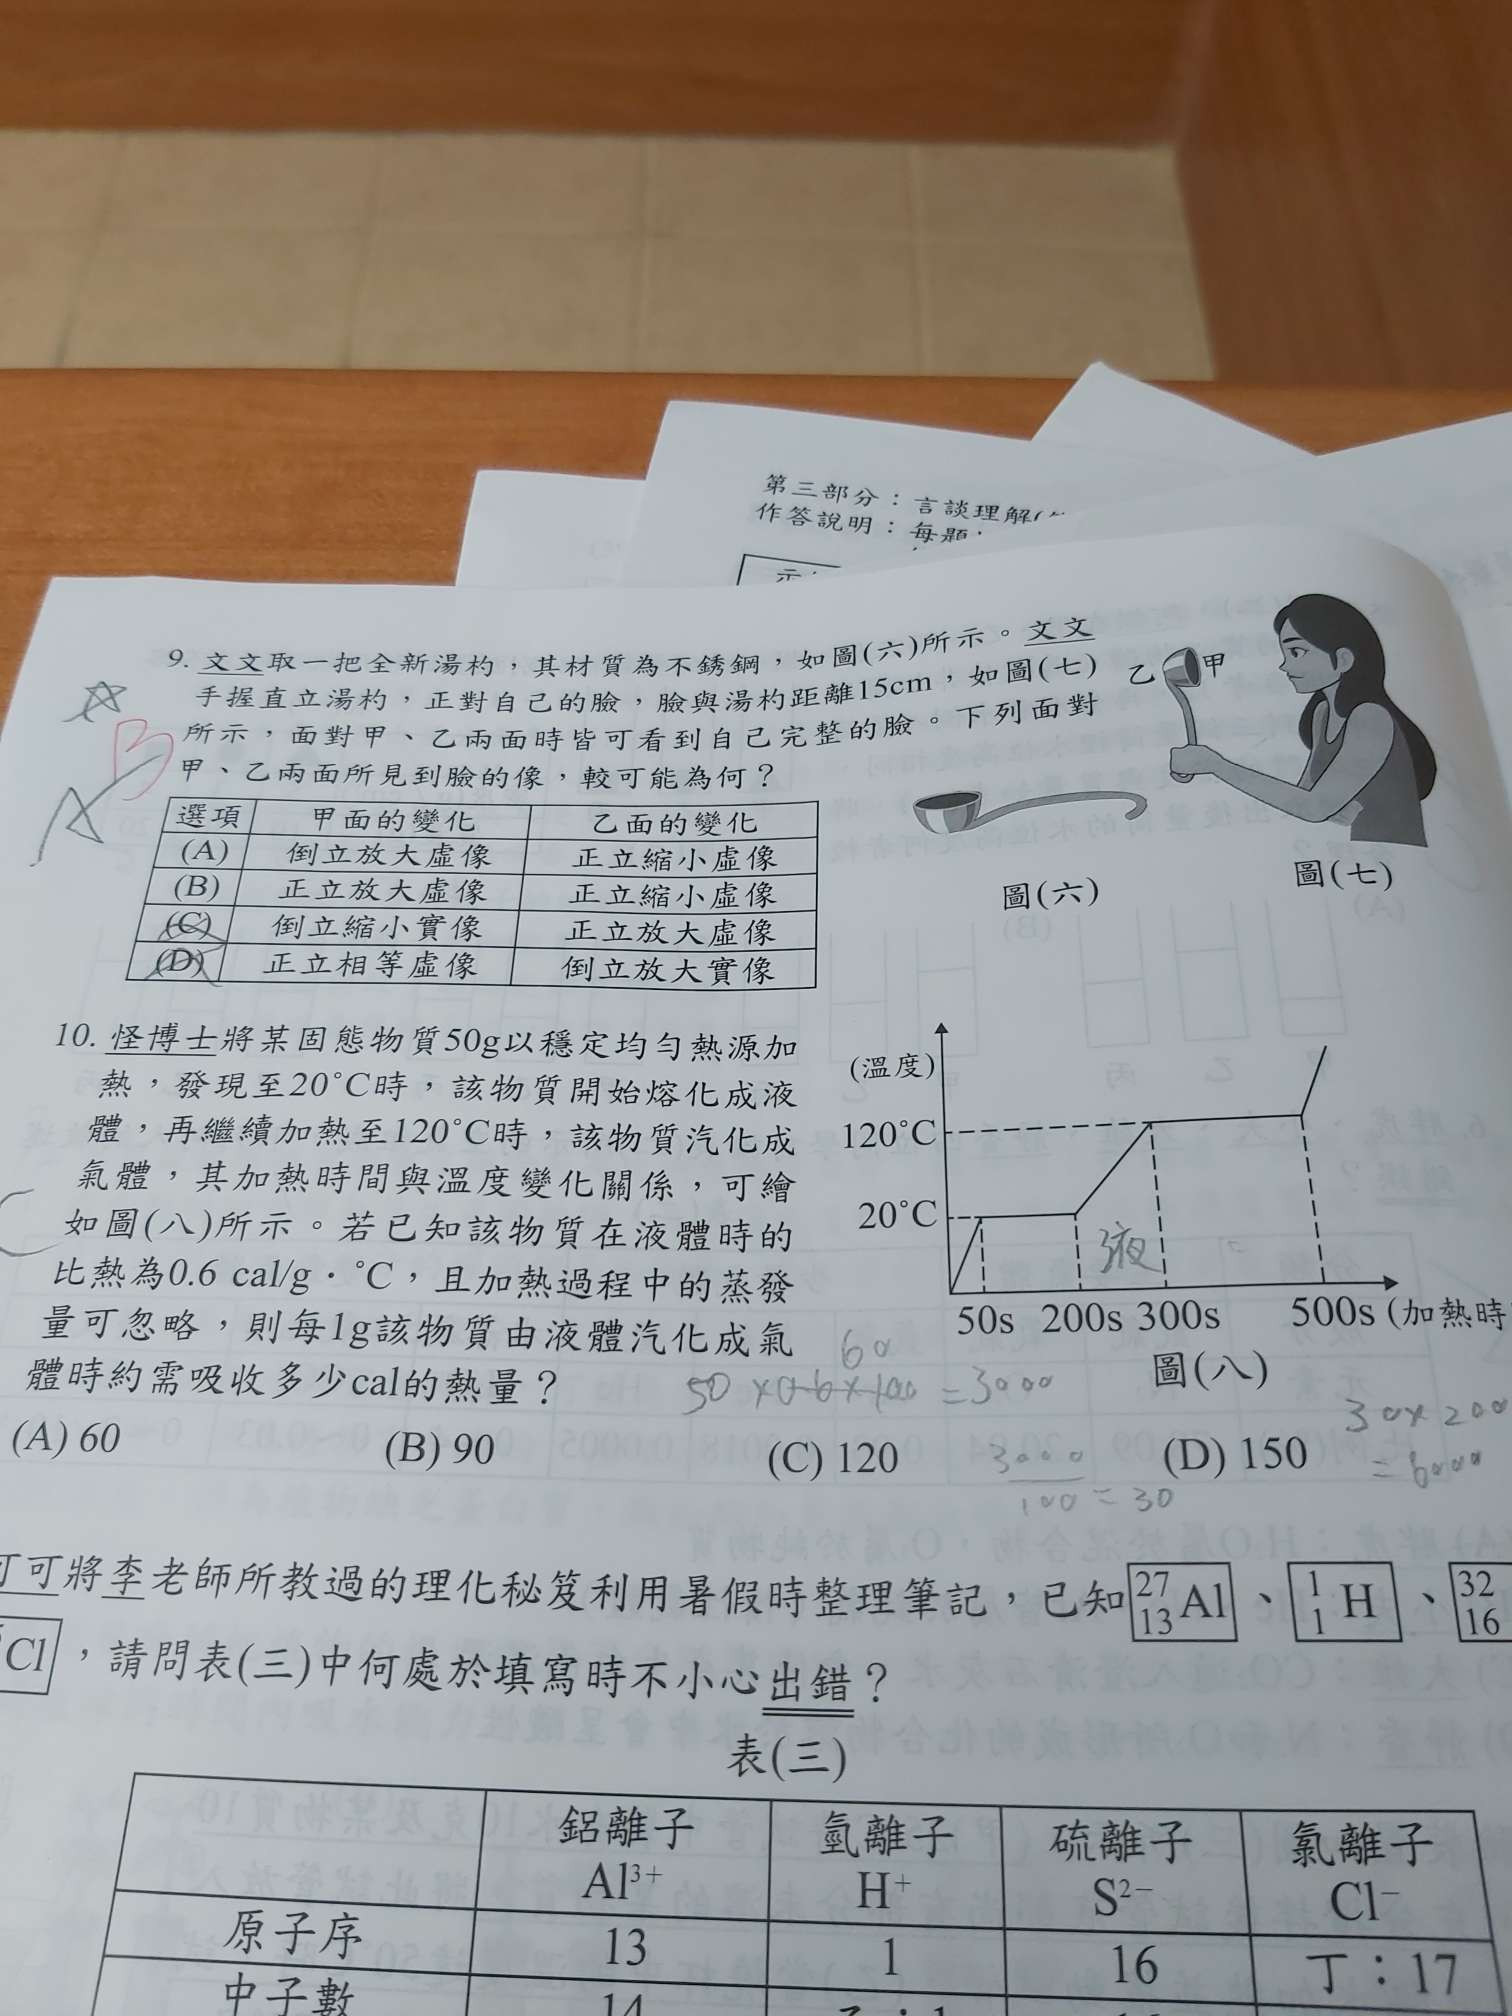 第三部分：言談理解
作答說明：每題
9. 文文取一把全新湯杓，其材質為不銹鋼，如圖(六)所示。文文
手握直立湯杓，正對自己的臉，臉與湯杓距離15cm，如圖(七)
所示，面對甲、乙兩面時皆可看到自己完整的臉。下列面對
甲、乙兩面所見到臉的像，較可能為何？
B
A
乙 甲
選項 甲面的變化 乙面的變化
(A) 倒立放大虛像 正立縮小虛像
(B) 正立放大虛像 正立縮小虛像
(C) 倒立縮小實像 正立放大虛像
(D) 正立相等虛像 倒立放大實像
圖(六)
圖(七)
10. 怪博士將某固態物質50g以穩定均勻熱源加
熱，發現至20°C時，該物質開始熔化成液
體，再繼續加熱至120°C時，該物質汽化成
氣體，其加熱時間與溫度變化關係，可繪
如圖(八)所示。若已知該物質在液體時的
比熱為0.6 cal/g．°C，且加熱過程中的蒸發
量可忽略，則每1g該物質由液體汽化成氣
體時約需吸收多少cal的熱量？
C
(溫度)
120°C
20°C
液
50s 200s 300s 500s (加熱時
圖(八)
60
50×0.6×100=3000
3000
100 = 30
30×200
=6000
(A) 60 (B) 90 (C) 120 (D) 150
可將李老師所教過的理化秘笈利用暑假時整理筆記，已知 27 13 Al、1 1 H、32 16
Cl，請問表(三)中何處於填寫時不小心出錯？
表(三)
鋁離子 Al³⁺ 氫離子 H⁺ 硫離子 S²⁻ 氯離子 Cl⁻
原子序 13 1 16 丁：17
中子數 14